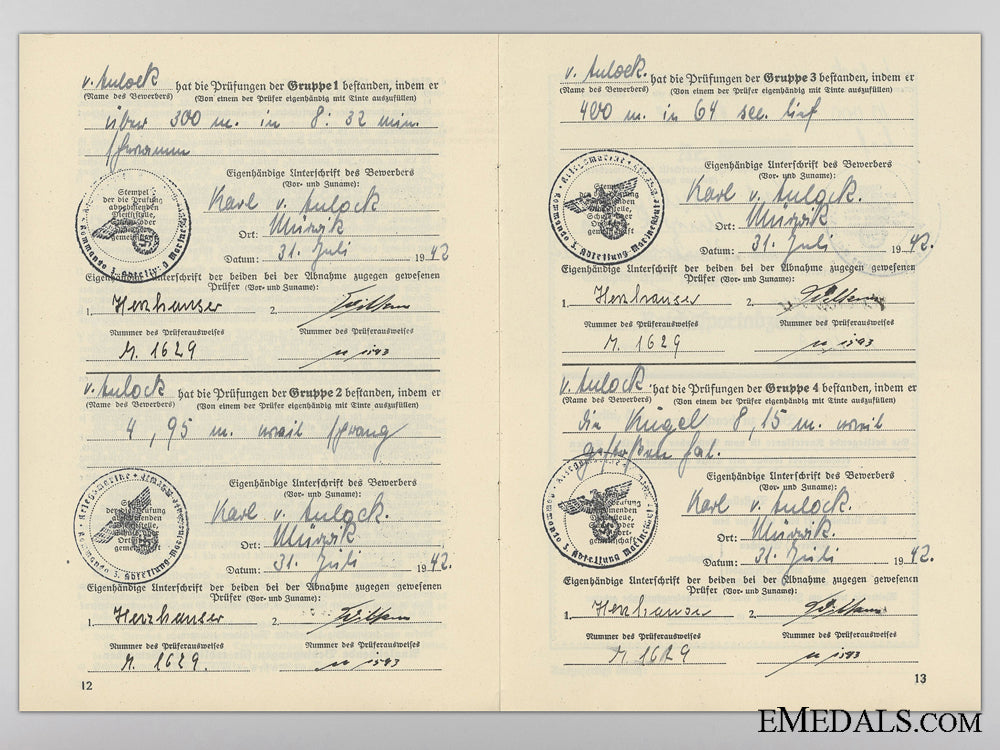 v. Aulock hat die Prüfungen der Gruppe 1 bestanden, indem er
(Name des Bewerbers) (Von einem der Prüfer eigenhändig mit Tinte auszufüllen)
über 300 m. in 8:32 min.
schwamm
Stempel
der die Prüfung
abnehmenden
Dienststelle,
Schule oder
Orts-
gemeinschaft
Eigenhändige Unterschrift des Bewerbers
(Vor- und Zuname):
Karl v. Aulock
Ort: Mürwik
Datum: 31. Juli 1942
Eigenhändige Unterschrift der beiden bei der Abnahme zugegen gewesenen
Prüfer (Vor- und Zuname):
1. Herzhauser 2.
Nummer des Prüferausweises Nummer des Prüferausweises
M. 1629 M 1593
v. Aulock hat die Prüfungen der Gruppe 2 bestanden, indem er
(Name des Bewerbers) (Von einem der Prüfer eigenhändig mit Tinte auszufüllen)
4,95 m. weit sprang
Kriegsmarine
Eigenhändige Unterschrift des Bewerbers
(Vor- und Zuname):
Karl v. Aulock.
Ort: Mürwik
Datum: 31. Juli 1942.
Eigenhändige Unterschrift der beiden bei der Abnahme zugegen gewesenen
Prüfer (Vor- und Zuname):
1. Herzhauser 2.
Nummer des Prüferausweises Nummer des Prüferausweises
M. 1629. M 1593
12
v. Aulock. hat die Prüfungen der Gruppe 3 bestanden, indem er
(Name des Bewerbers) (Von einem der Prüfer eigenhändig mit Tinte auszufüllen)
400 m. in 64 sec. lief
Kriegsmarine
Eigenhändige Unterschrift des Bewerbers
(Vor- und Zuname):
Karl v. Aulock.
Ort: Mürwik
Datum: 31. Juli 1942.
Eigenhändige Unterschrift der beiden bei der Abnahme zugegen gewesenen
Prüfer (Vor- und Zuname):
1. Herzhauser 2.
Nummer des Prüferausweises Nummer des Prüferausweises
M. 1629 M. 1593
v. Aulock hat die Prüfungen der Gruppe 4 bestanden, indem er
(Name des Bewerbers) (Von einem der Prüfer eigenhändig mit Tinte auszufüllen)
die Kugel 8,15 m. weit
gestoßen hat.
Eigenhändige Unterschrift des Bewerbers
(Vor- und Zuname):
Karl v. Aulock.
Ort: Mürwik
Datum: 31. Juli 1942.
Eigenhändige Unterschrift der beiden bei der Abnahme zugegen gewesenen
Prüfer (Vor- und Zuname):
1. Herzhauser 2.
Nummer des Prüferausweises Nummer des Prüferausweises
M 1629 M 1593
13
EMEDALS.COM